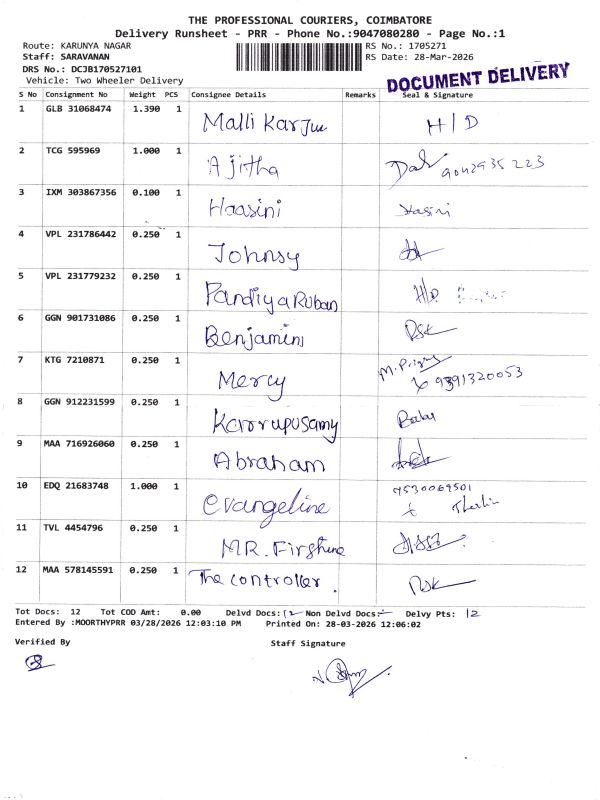 THE PROFESSIONAL COURIERS, COIMBATORE
Delivery Runsheet - PRR - Phone No.:9047080280 - Page No.:1
Route: KARUNYA NAGAR RS No.: 1705271
Staff: SARAVANAN RS Date: 28-Mar-2026
DRS No.: DCJB170527101
Vehicle: Two Wheeler Delivery DOCUMENT DELIVERY
S No Consignment No Weight PCS Consignee Details Remarks Seal & Signature
1 GLB 31068474 1.390 1 Malli Karjun H/D
2 TCG 595969 1.000 1 Ajitha 9042935223
3 IXM 303867356 0.100 1 Haasini Hasini
4 VPL 231786442 0.250 1 Johnsy
5 VPL 231779232 0.250 1 Pandiya Ruban H/D
6 GGN 901731086 0.250 1 Benjamini RSK
7 KTG 7210871 0.250 1 Mercy 9391320053
8 GGN 912231599 0.250 1 Karrupusamy
9 MAA 716926060 0.250 1 Abraham
10 EDQ 21683748 1.000 1 Evangeline 7530069501
11 TVL 4454796 0.250 1 MR. Firshine
12 MAA 578145591 0.250 1 The controller. RSK
Tot Docs: 12 Tot COD Amt: 0.00 Delvd Docs: 12 Non Delvd Docs: - Delvy Pts: 12
Entered By :MOORTHYPRR 03/28/2026 12:03:10 PM Printed On: 28-03-2026 12:06:02
Verified By Staff Signature